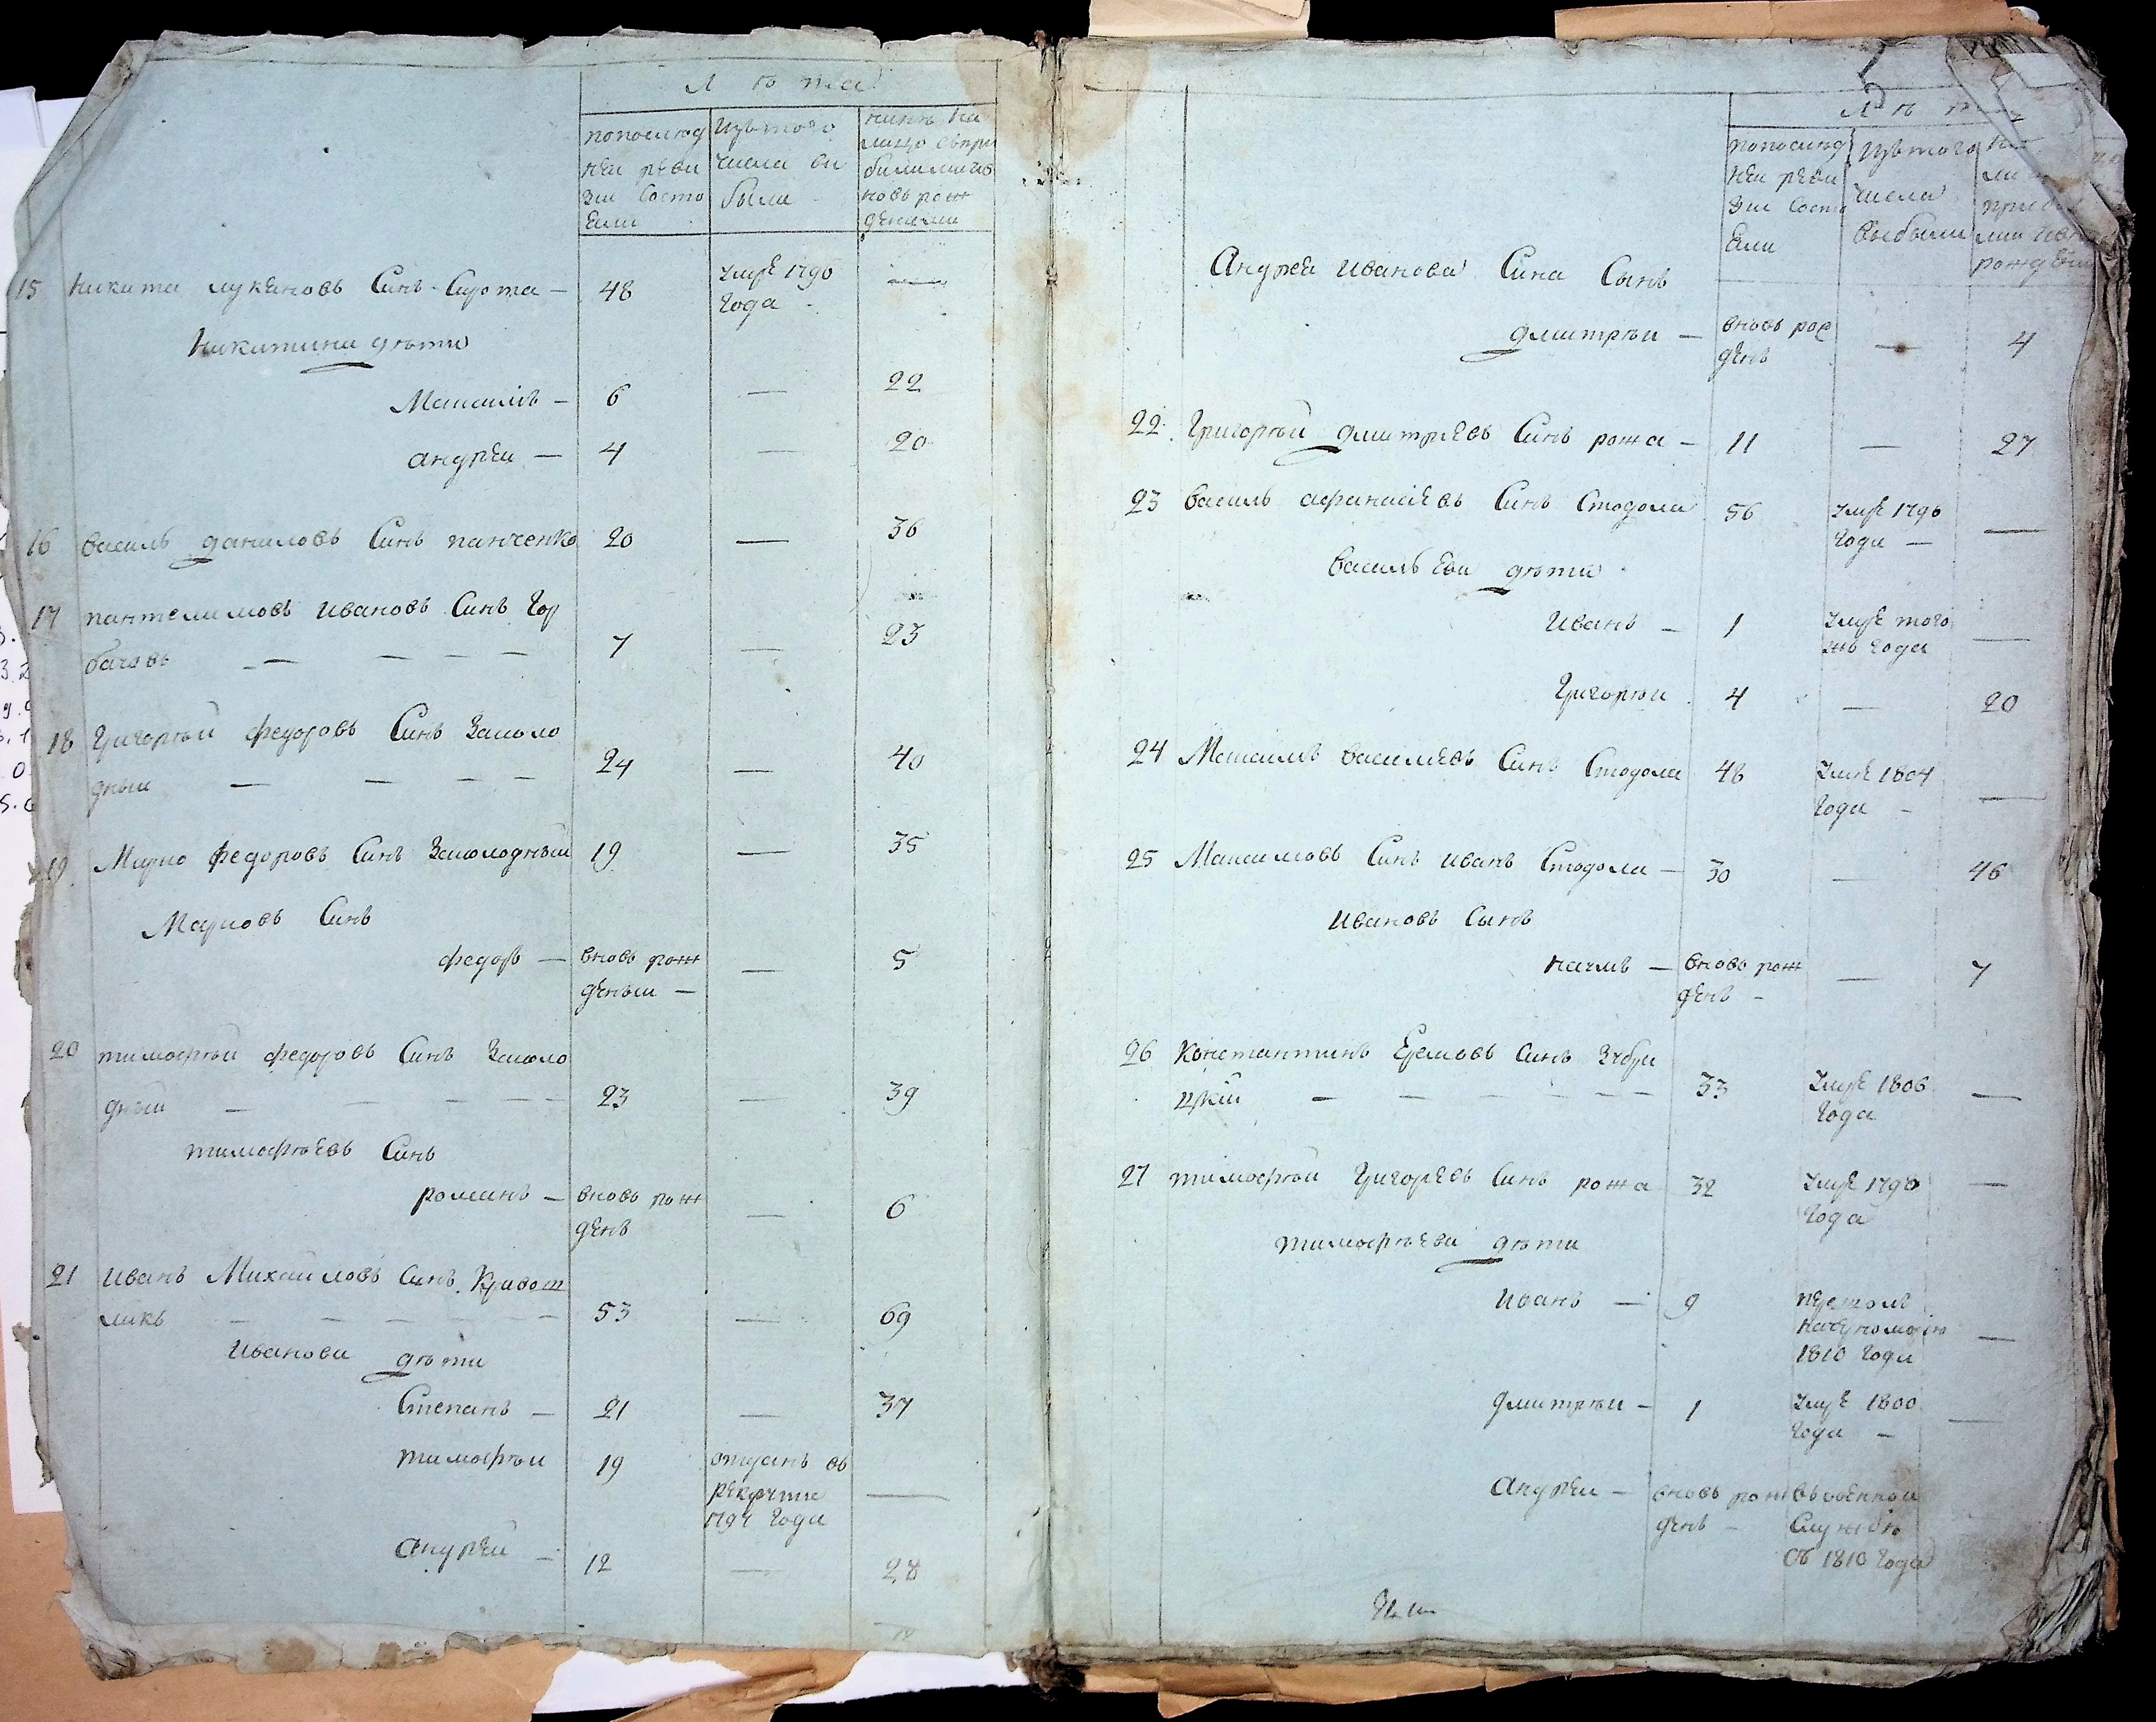 Лѣта
попослѣд
ней реви
зии состо
яли
изътого
числа вы
были
нинѣ на
лицо сприбилимиъ
новь рож
денними
15 Никита лукяновъ Синъ Сирота — 48 умре 1796
Года —
Никитини дѣти
Максимъ — 6 — 22
андреи — 4 — 20
16 василь даниловъ Синъ панченко 20 — 36
17 пантелимовъ ивановъ Синъ Гор
бачовъ — 7 — 23
18 Григорѣй федоровъ Синъ Заполо
дный — 24 — 40
19 Марко федоровъ Синъ Заполодный 19 — 35
Марковъ Синъ
федоръ — вновь рож
деный — — 5
20 тимофѣй федоровъ Синъ Заполо
дный — 23 — 39
тимофѣевъ Синъ
романъ — вновь рож
денъ — 6
21 иванъ Михайловъ Синъ Кривот
ликъ — 53 — 69
Иванови дѣти
Степанъ — 21 — 37
тимофѣи 19 отданъ въ
рекруты —
1794 Года
андрей — 12 — 28
Лѣт
попослѣд
ней реви
зии состо
яли
изътого
числа
выбыли
Андрея иванова Сина Сынъ
дмитрѣи — вновь рож
денъ — 4
22 Григорѣй дмитриевъ Синъ рожа — 11 — 27
23 василь афанасіевъ Синъ Стодола 56 умре 1796
Года — —
васильеви дѣти
иванъ — 1 умре того
жъ Года —
Григорѣи 4 — 20
24 Максимъ василиевъ Синъ Стодола 48 умре 1804
Года — —
25 Максимовъ Синъ иванъ Стодола — 30 — 46
ивановъ Сынъ
наумъ — вновь рож
денъ — — 7
26 Константинъ Еремовъ Синъ
цкій — 33 умре 1806
Года —
27 тимофѣй Григориевъ Синъ рожа 32 умре 1798
Года —
тимофѣеви дѣти
иванъ — 9
1810 Года —
дмитрѣи — 1 умре 1800
Года — —
андреи — вновь рож
денъ — въвоенной
Службѣ
съ 1810 Года